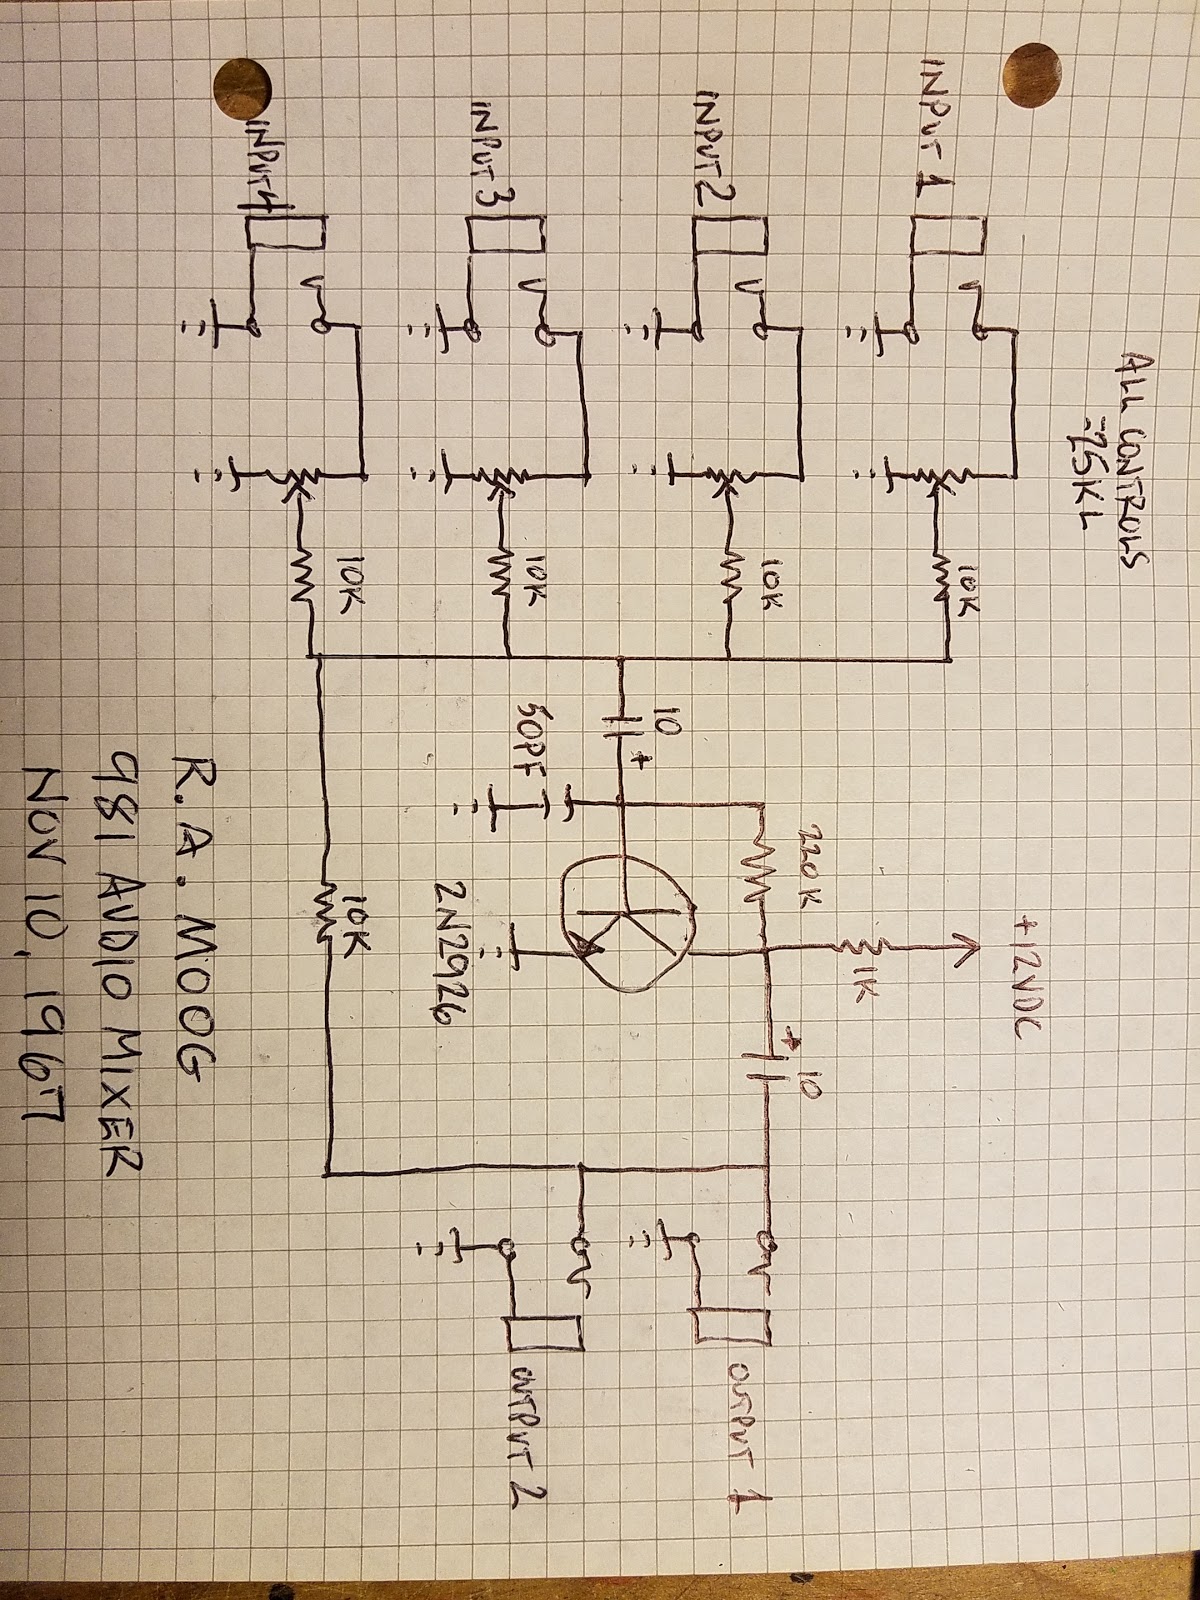 ALL CONTROLS
=25KL
+12VDC
INPUT 1
10K
1K
220K
+ 10
OUTPUT 1
INPUT 2
10K
10
+
INPUT 3
10K
50PF
2N2926
OUTPUT 2
INPUT 4
10K
10K
R.A. MOOG
981 AUDIO MIXER
NOV 10, 1967